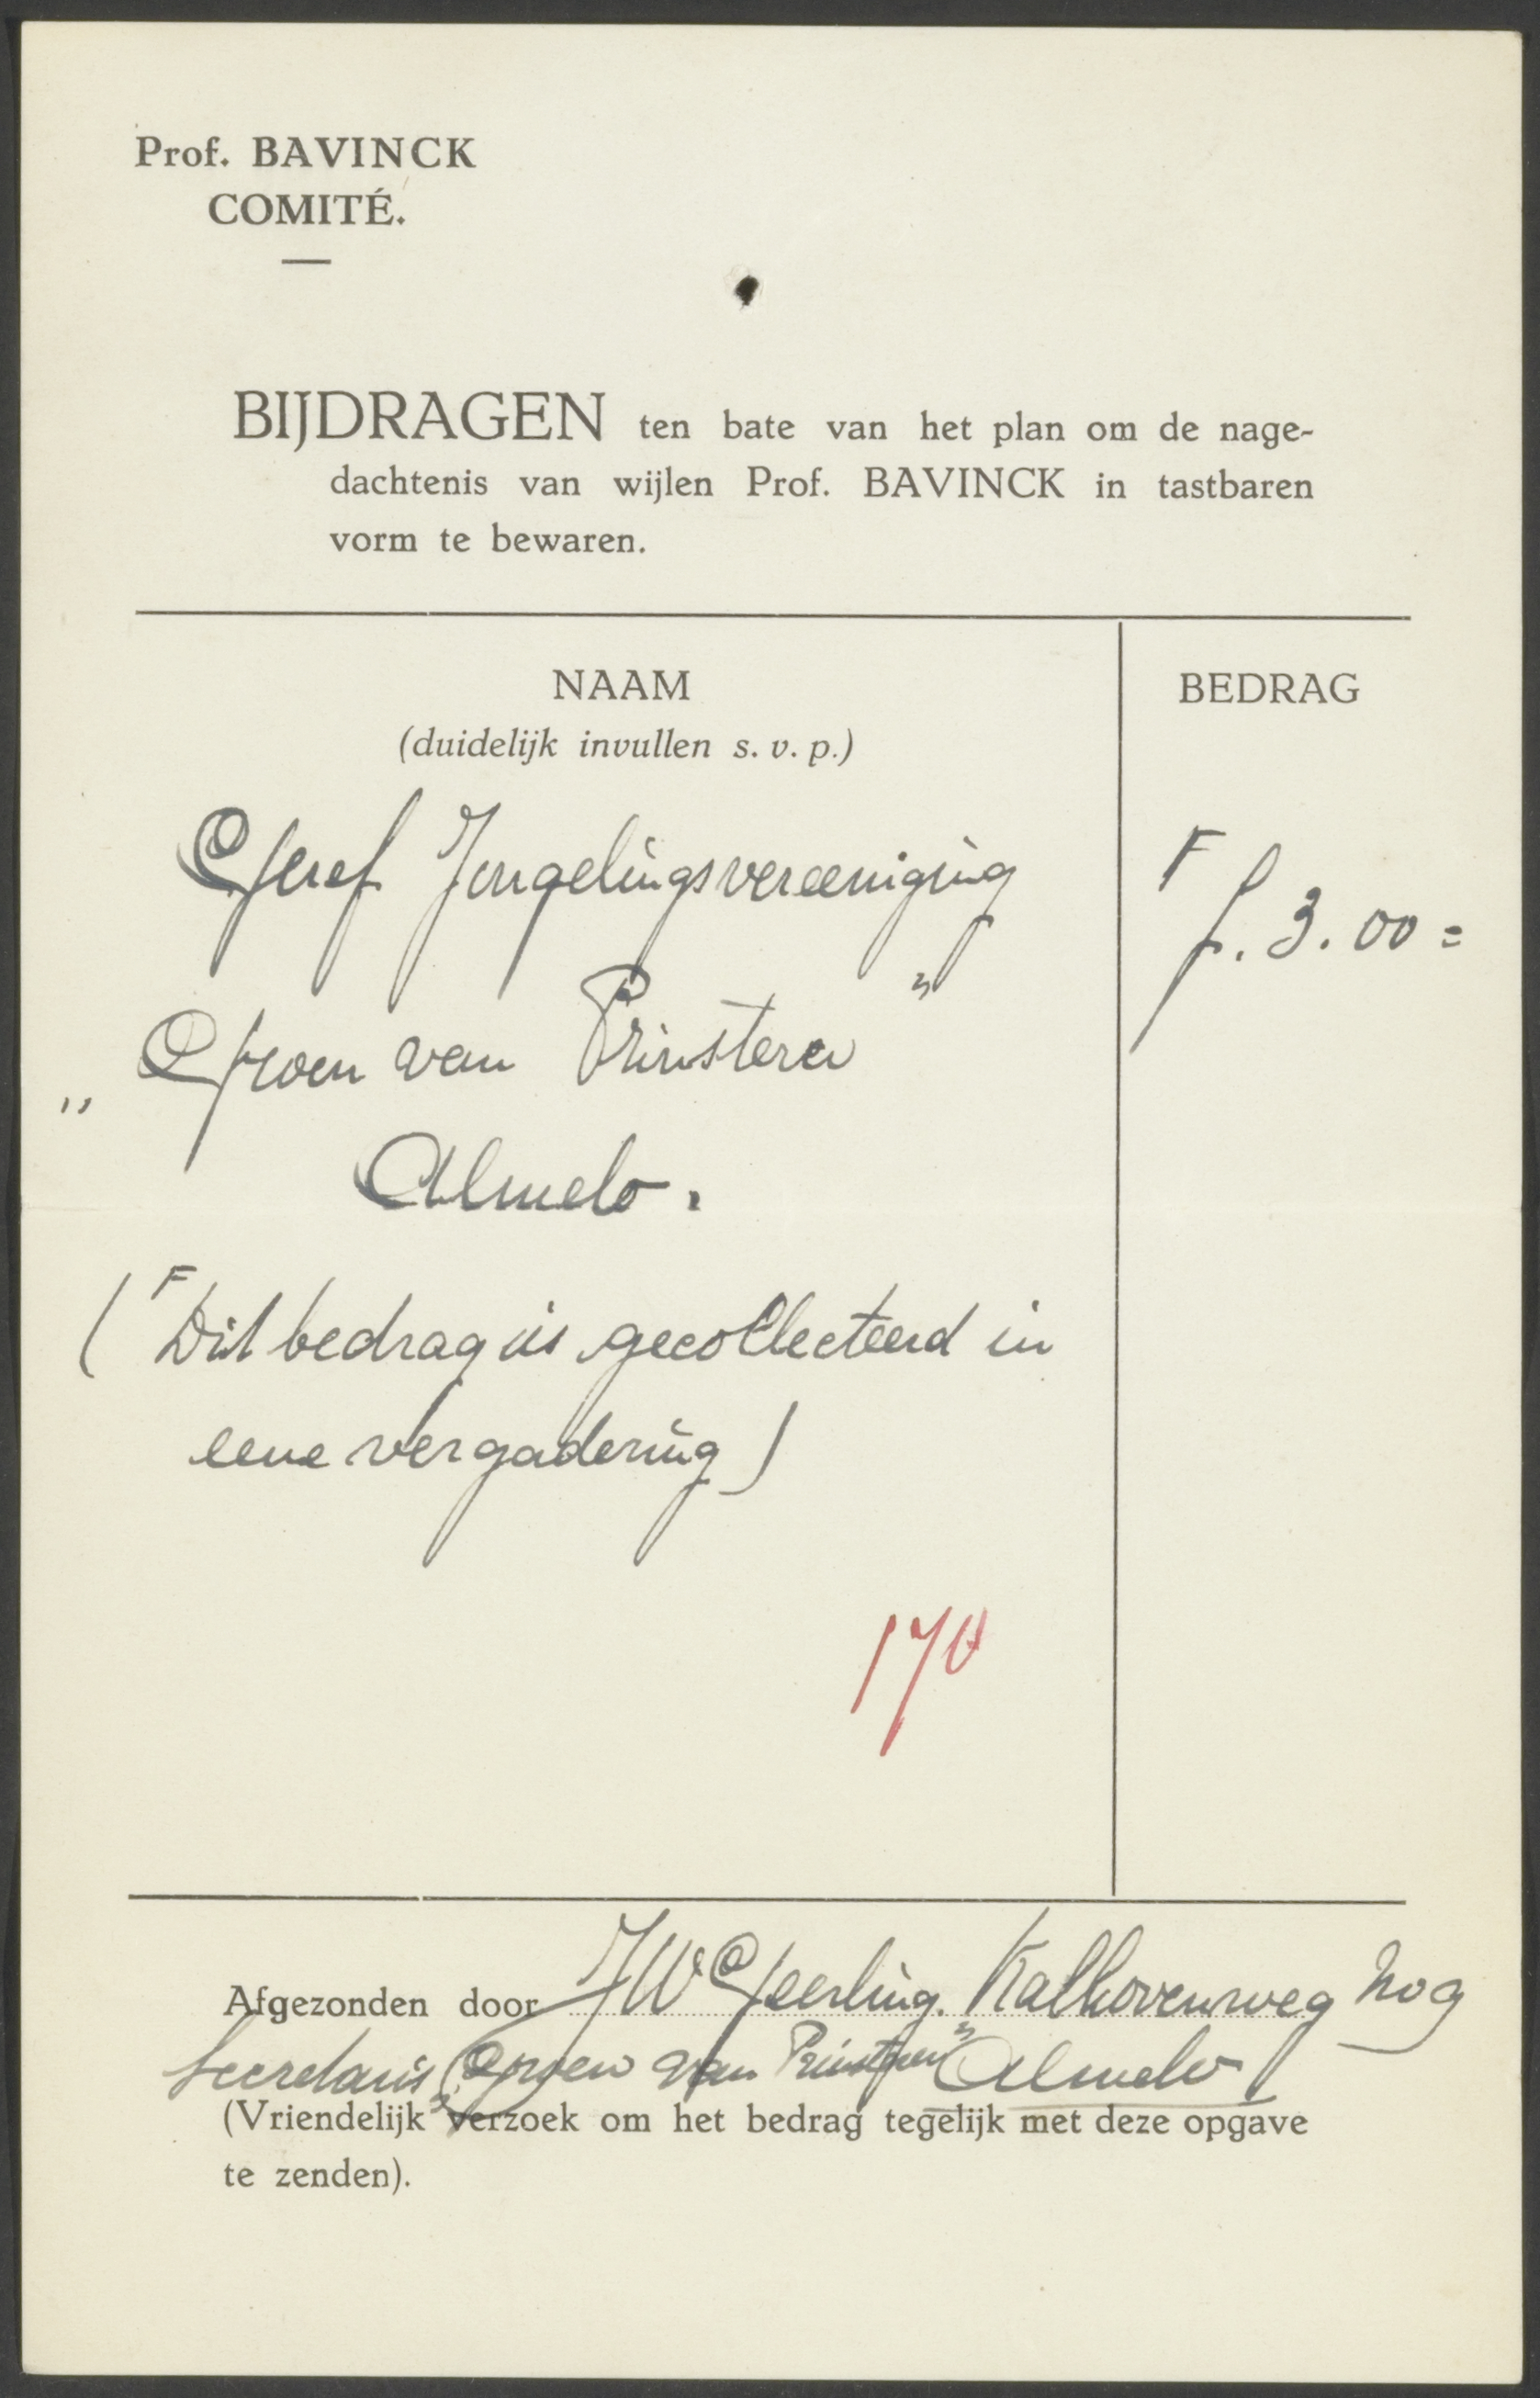 Prof. BAVINCK
COMITÉ.
BIJDRAGEN ten bate van het plan om de nage-
dachtenis van wijlen Prof. BAVINCK in tastbaren
vorm te bewaren.
NAAM
BEDRAG
(duidelijk invullen s. v. p.)
Geref Jongelingsvereeniging
F f. 3.00 =
„Groen van Prinsterer”
Almelo.
(F Dit bedrag is gecollecteerd in
eene vergadering)
170
Afgezonden door JW Geerling. Kalhovenweg
Secretaris „Groen van Prinsterer” Almelo
(Vriendelijk verzoek om het bedrag tegelijk met deze opgave
te zenden).